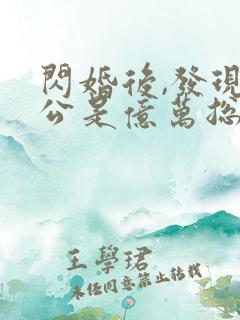 閃婚後,發現
公是億萬總
王學珺
未經同意禁止轉載